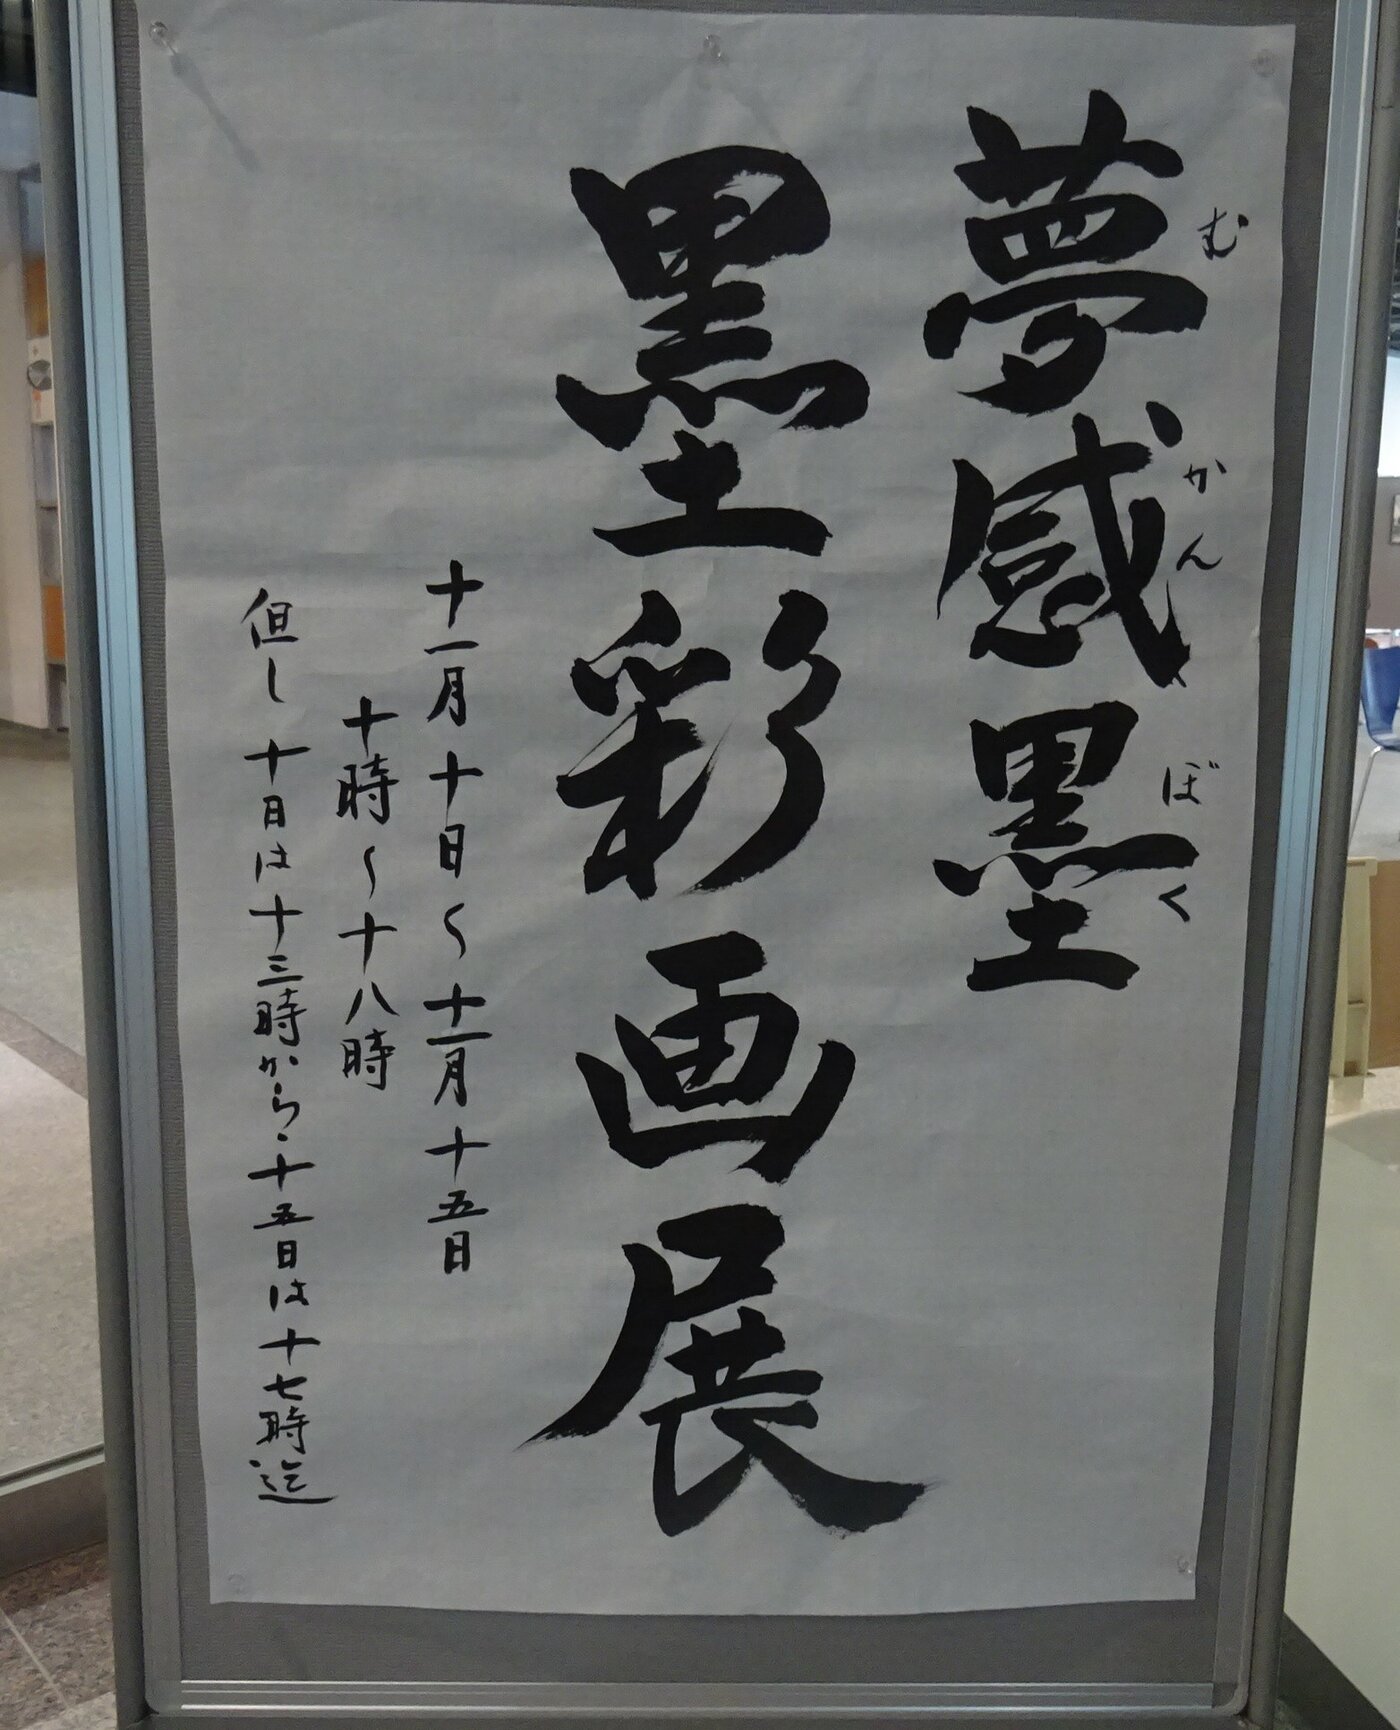 夢感墨
むかんぼく
墨彩画展
十一月十日〜十一月十五日
十時〜十八時
但し十日は十三時から・十五日は十七時迄